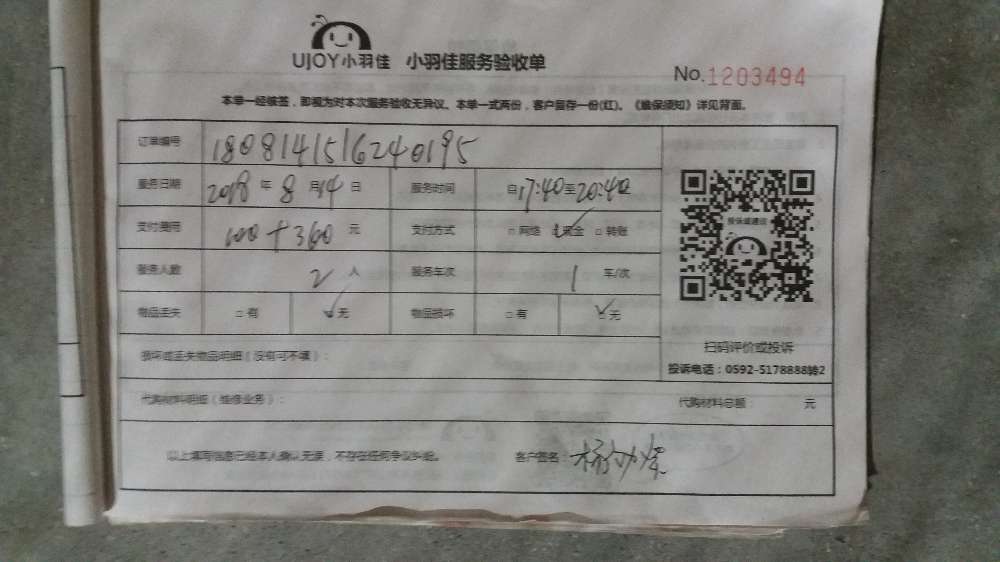 UJOY小羽佳 小羽佳服务验收单
No.1203494
本单一经签签，即视为对本次服务验收无异议。本单一式两份，客户留存一份(红)。《维保须知》详见背面。
订单编号 1808141516240195
服务日期 2018 年 8 月 14 日 服务时间 自17:40至20:40
支付费用 600+360 元 支付方式 □网络 现金 □转账
服务人数 2 人 服务车次 1 车/次
物品丢失 □有 无 物品损坏 □有 □无
投保或通话
扫码评价或投诉
投诉电话：0592-5178888转2
损坏或丢失物品明细（没有可不填）：
代购材料明细（维修业务）： 代购材料总额： 元
以上填写信息已经本人确认无误，不存在任何争议纠纷。 客户签名：杨